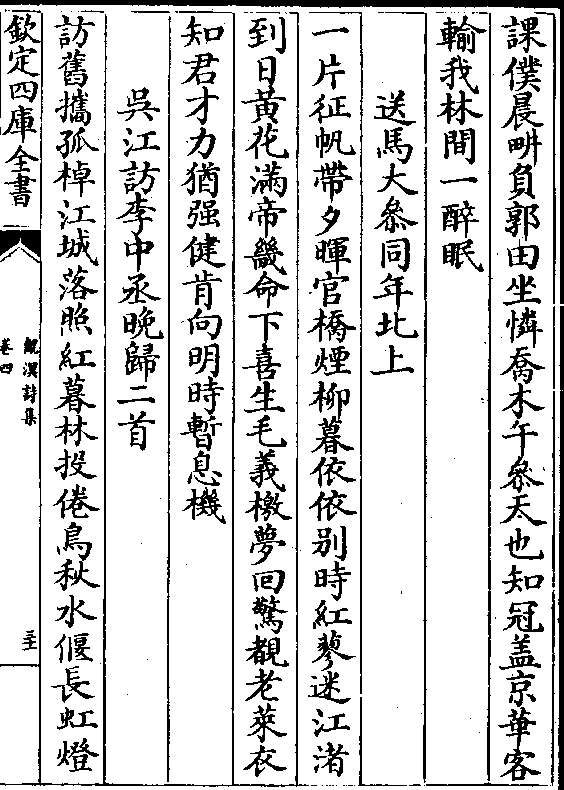 課僕晨畊負郭田坐憐喬木午叅天也知冠盖京華客
輸我林間一醉眠
送馬大叅同年北上
一片征帆帶夕暉官橋煙柳暮依依别時紅蓼迷江渚
到日黃花滿帝畿命下喜生毛義檄夢回驚覩老萊衣
知君才力猶强健肯向明時暫息機
吳江訪李中丞晚歸二首
訪舊攜孤棹江城落照紅暮林投倦鳥秋水偃長虹燈
欽定四庫全書
卷四